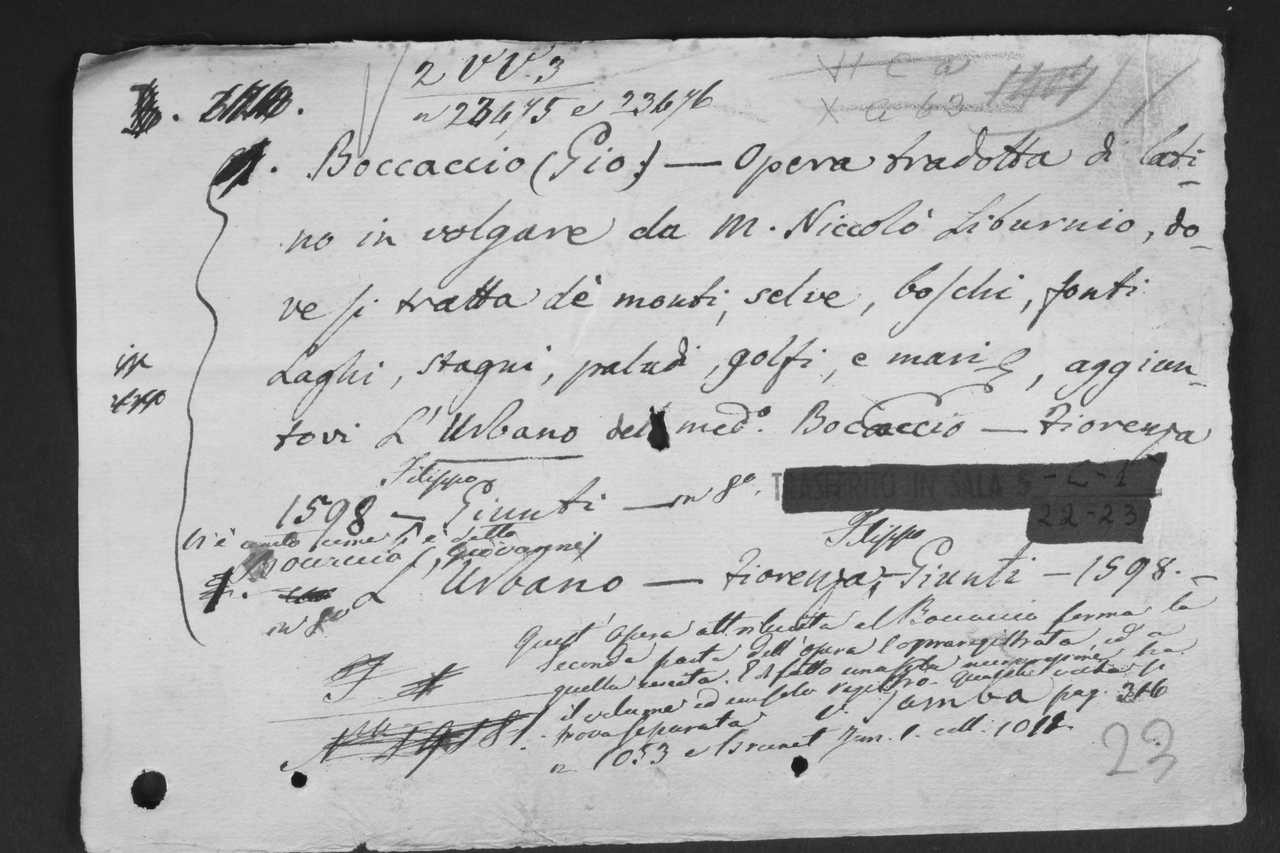 2 VV. 3
n 23475 e 23476
VI C a
X a 63
1. Boccaccio (Gio.) — Opera tradotta di lati-
no in volgare da M. Niccolò Liburnio, do-
ve si tratta de' monti, selve, boschi, fonti
Laghi, stagni, paludi, golfi, e mari, aggiun-
tovi L'Urbano del med.º Boccaccio — Fiorenza
1598 — Filippo Giunti — in 8º.
TRASFERITO IN SALA 5-C-1
22-23
Vi è unito come s'è detto
Boccaccio, Giovanni
L'Urbano — Fiorenza, Filippo Giunti — 1598. —
in 8º
Quest'opera attribuita al Boccaccio forma la
seconda parte dell'opera sopraregistrata, ed a
quella unita. Ed fatto una sola numerazione ha
il volume ed un solo registro. Qualche volta si
trova separata V. Gamba pag. 316
n. 1053 e Brunet Tom. 1. coll. 1012
23